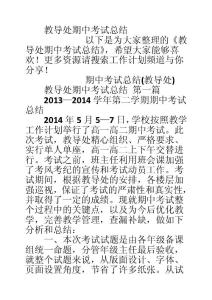 教导处期中考试总结
以下是为大家整理的《教导处期中考试总结》，希望大家能够喜欢！更多资源请搜索工作计划频道与你分享！
期中考试总结(教导处)
教导处期中考试总结 第一篇
2013—2014 学年第二学期期中考试总结
2014 年 5 月 5—7 日，学校按照教学工作计划举行了高一高二期中考试。此次考试，教导处精心组织、严格要求，实行单人单座，高一高二上下午交替进行。考试之前，班主任利用班会课加强了考风考纪的宣传和考试动员工作。考试期间，根据教导处的安排，各楼层加强巡视，保证了考试的严肃性和真实性，并取得了一定的成绩。现就期中考试整个过程中的关键点，以及为今后优化教学，完善教学管理，查漏补缺，做如下分析和总结：
一、本次考试试题是由各年级备课组统一命题，分管年级主任最后验收，整个试题来说，从版面设计、字体、页面设置角度，节省了许多纸张。从试